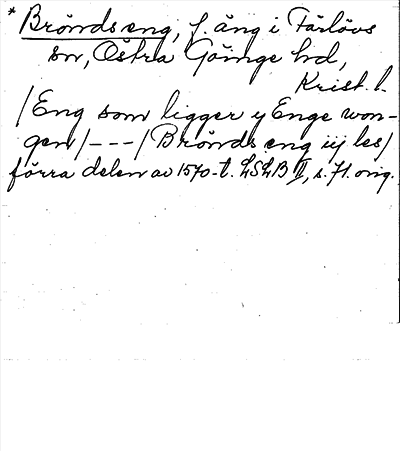 * Brönds eng, f. äng i Färlövs
sn, Östra Göinge hd,
Krist. l.
/Eng som ligger y Enge won-
gen/ - - - / Brönds eng iij les/
förra delen av 1570-t. LSLB II, s. 71. orig.